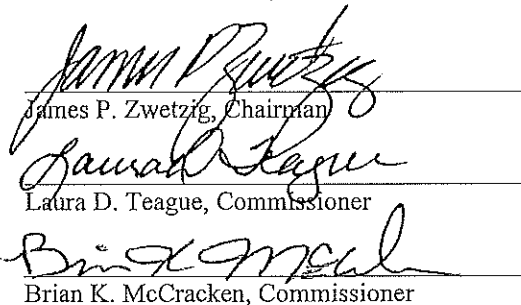 James P Zwetzig
James P. Zwetzig, Chairman
Laura D. Teague
Laura D. Teague, Commissioner
Brian K McCracken
Brian K. McCracken, Commissioner